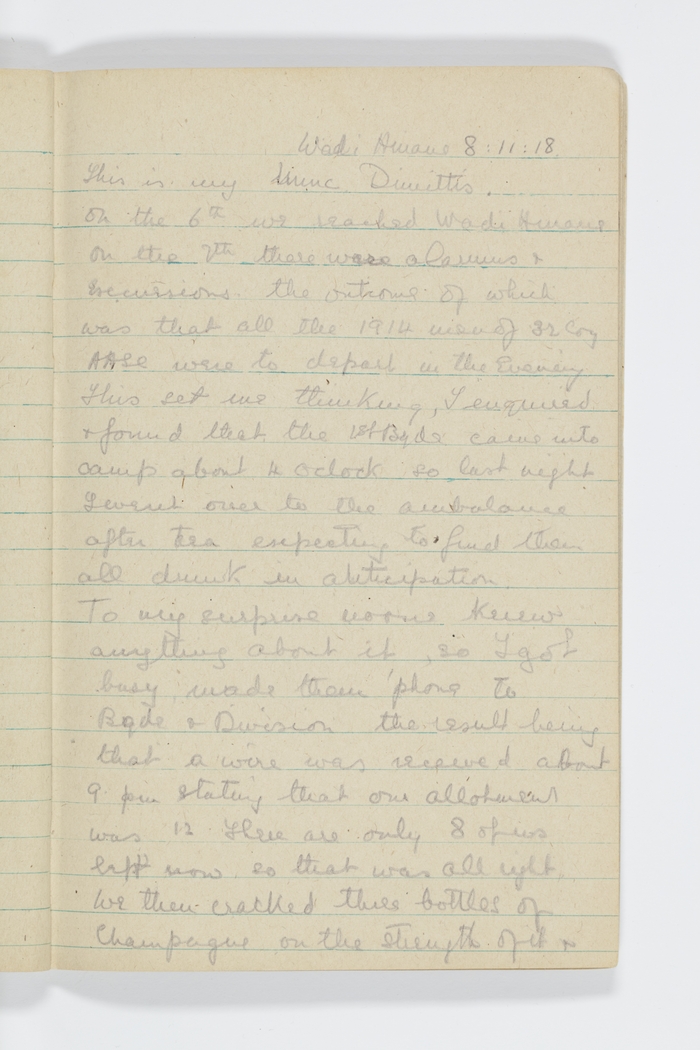 Wadi Hmane 8:11:18
This is my Nunc Dimittis.
On the 6th we reached Wadi Hmane
on the 7th there were alarums &
excursions the outcome of which
was that all the 1914 men of 32 Coy
AASC were to depart in the Evening
This set me thinking, I enquired
& found that the 1st Bgde came into
camp about 4 oclock so last night
I went over to the ambulance
after tea expecting to find them
all drunk in anticipation
To my surprise noone knew
anything about it, so I got
busy made them 'phone to
Bgde & Division the result being
that a wire was received about
9 pm stating that our allotment
was 12 There are only 8 of us
left now so that was all right.
We then cracked three bottles of
Champagne on the strength of it &